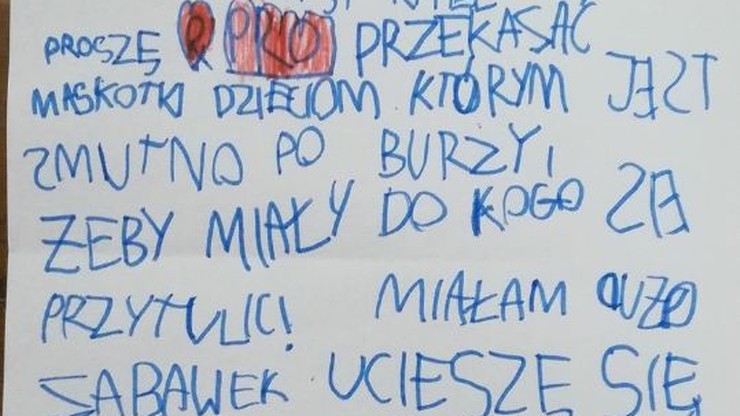 PROSZĘ PRZEKASAĆ
MASKOTKI DZIECIOM KTÓRYM JEST
SMUTNO PO BURZY,
ŻEBY MIAŁY DO KOGO SIĘ
PRZYTULIĆ! MIAŁAM DUŻO
SABAWEK UCIESZĘ SIĘ